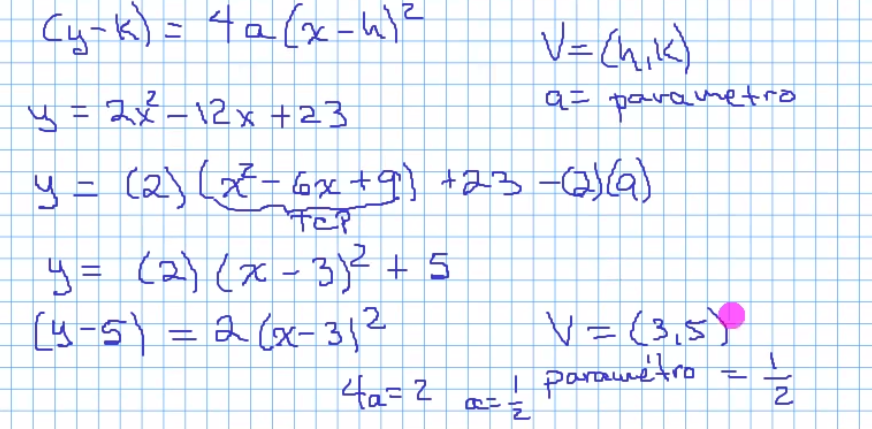 (y-k) = 4a(x-h)²
V=(h,k)
a= parametro
y = 2x²-12x+23
y = (2)(x²-6x+9)+23-(2)(9)
TCP
y= (2)(x-3)²+5
(y-5) = 2(x-3)²
V = (3,5)
4a=2 a=1/2
parametro = 1/2